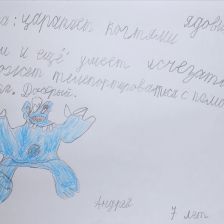 а: царапает когтями ядови
м и ещё умеет исчезать
ожет телепортироваться с помо
Добрый.
Андрей
7 лет